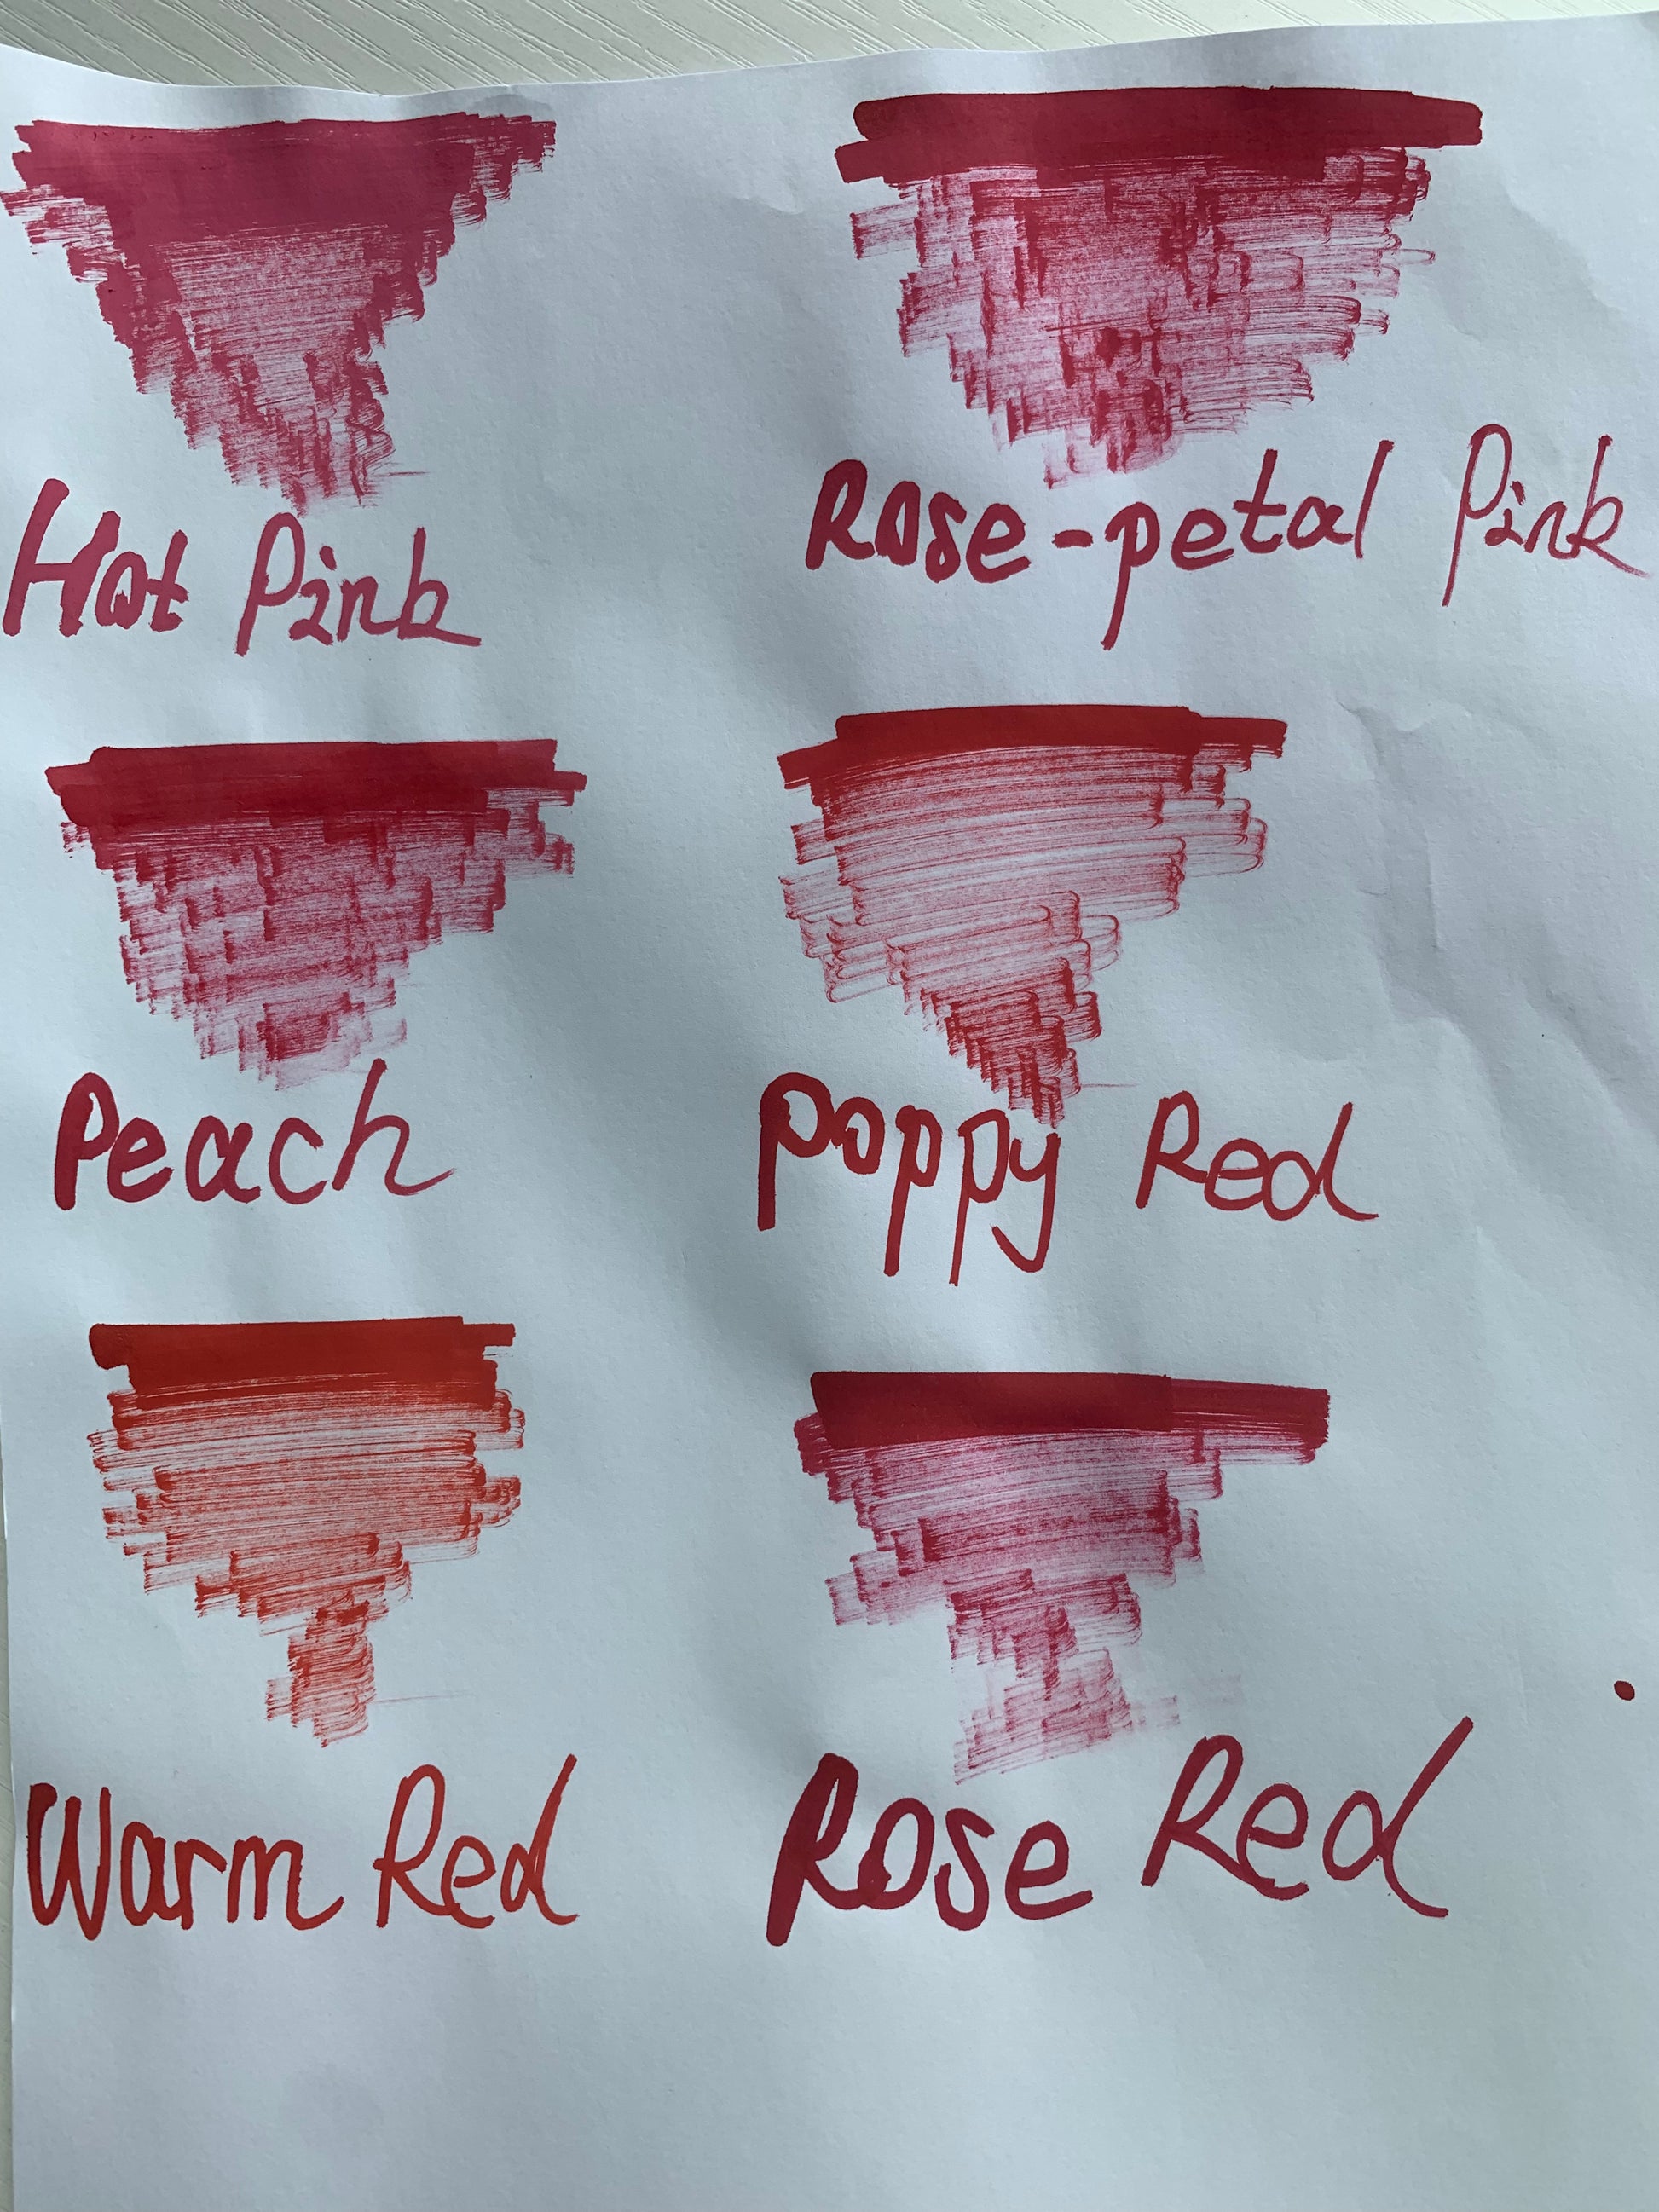 Hot Pink
Rose-petal Pink
Peach
Poppy Red
Warm Red
Rose Red